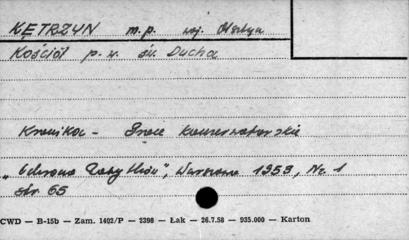 KĘTRZYN m.p. woj. Olsztyn
Kościół p.w. św. Ducha
Kronika - Prace konserwatorskie
„Ochrona Zabytków", Warszawa 1953, Nr. 1
str. 65
CWD — B-15b — Zam. 1402/P — 2398 — Łak — 26.7.58 — 935.000 — Karton